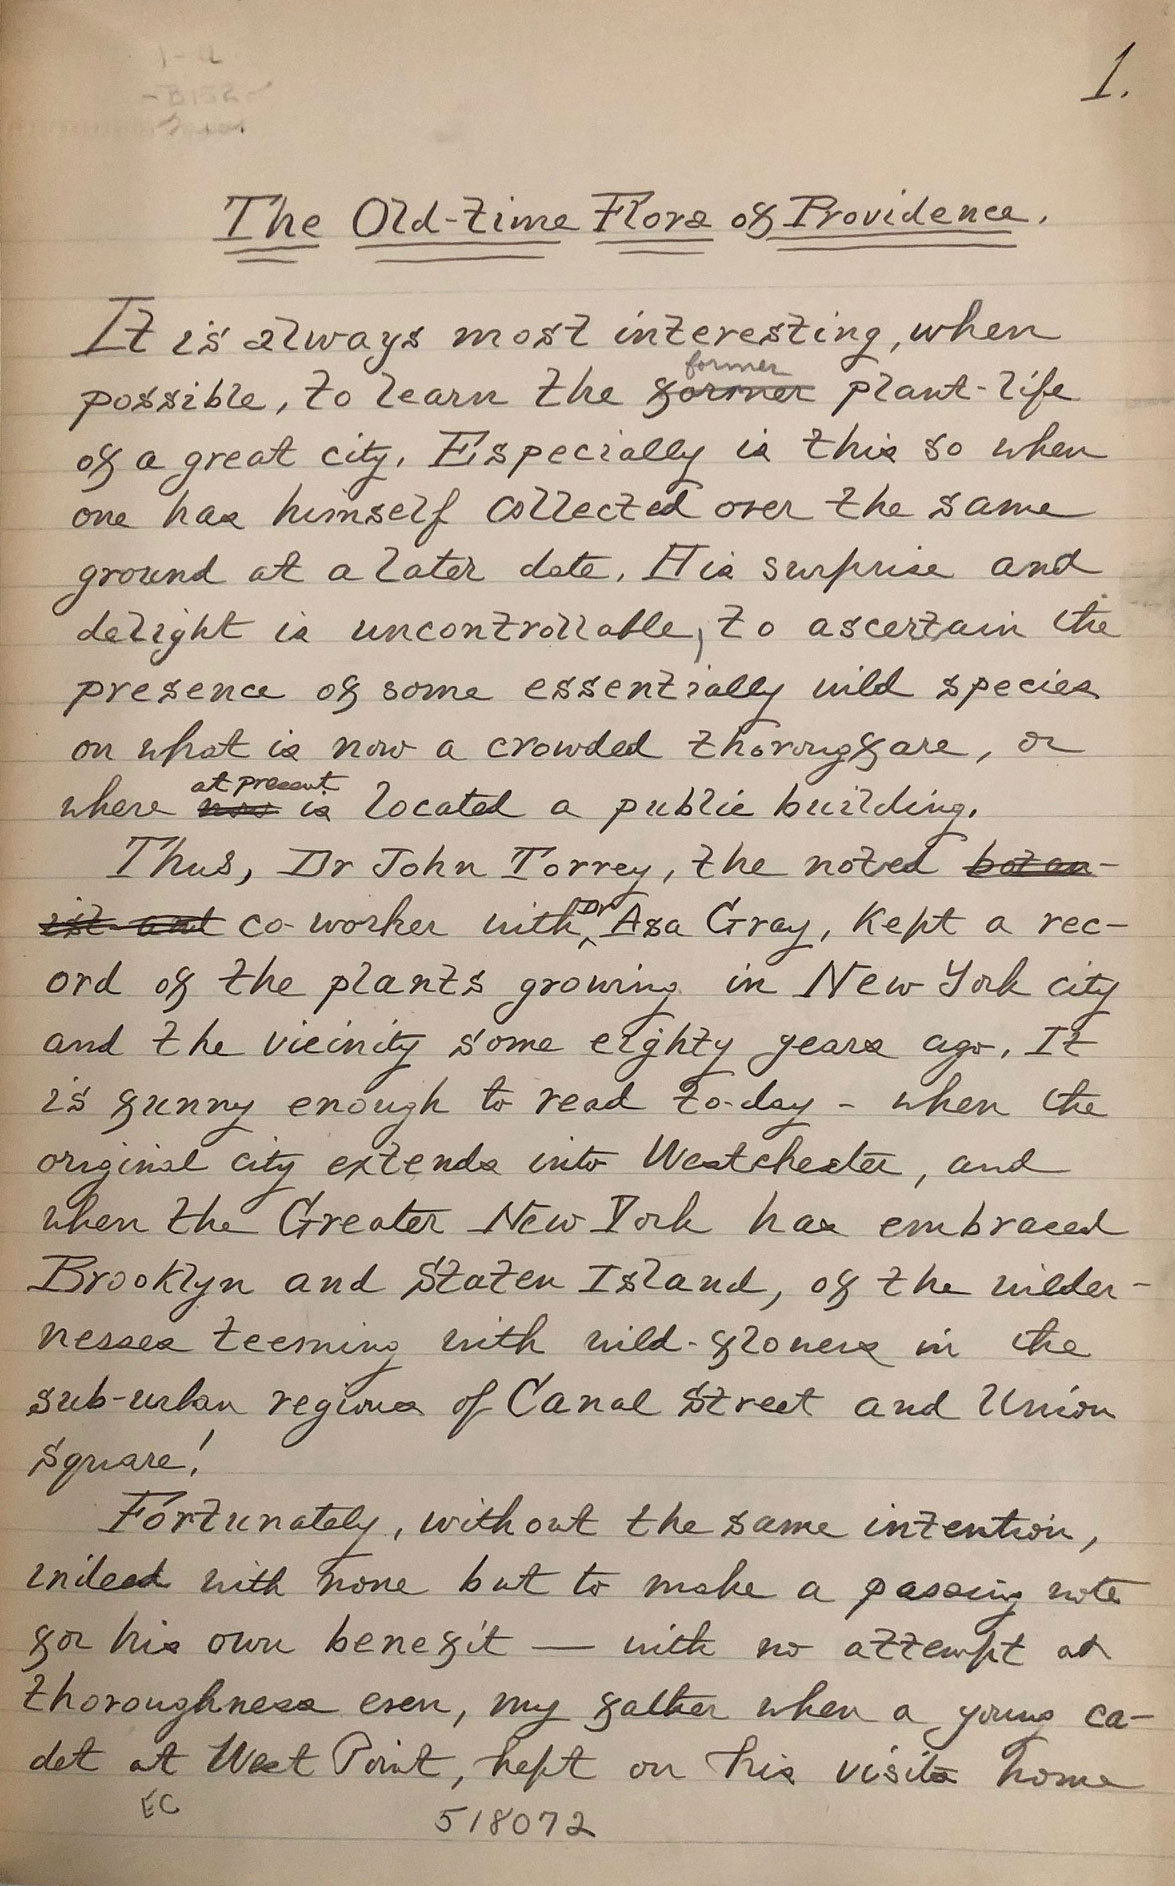 1.
The Old-time Flora of Providence.
It is always most interesting, when
former
possible, to learn the former plant-life
of a great city. Especially is this so when
one has himself collected over the same
ground at a later date. His surprise and
delight is uncontrollable, to ascertain the
presence of some essentially wild species
on what is now a crowded thorougfare, or
at present
where now is located a public building.
Thus, Dr John Torrey, the noted botan-
ist and co-worker with Dr Asa Gray, kept a rec-
ord of the plants growing in New York city
and the vicinity some eighty years ago. It
is funny enough to read to-day - when the
original city extends into Westchester, and
when the Greater New York has embraced
Brooklyn and Staten Island, of the wilder-
nesses teeming with wild-flowers in the
sub-urban regions of Canal Street and Union
Square!
Fortunately, without the same intention,
indeed with none but to make a passing note
for his own benefit — with no attempt at
thoroughness even, my father when a young ca-
det at West Point, kept on his visits home
EC
518072